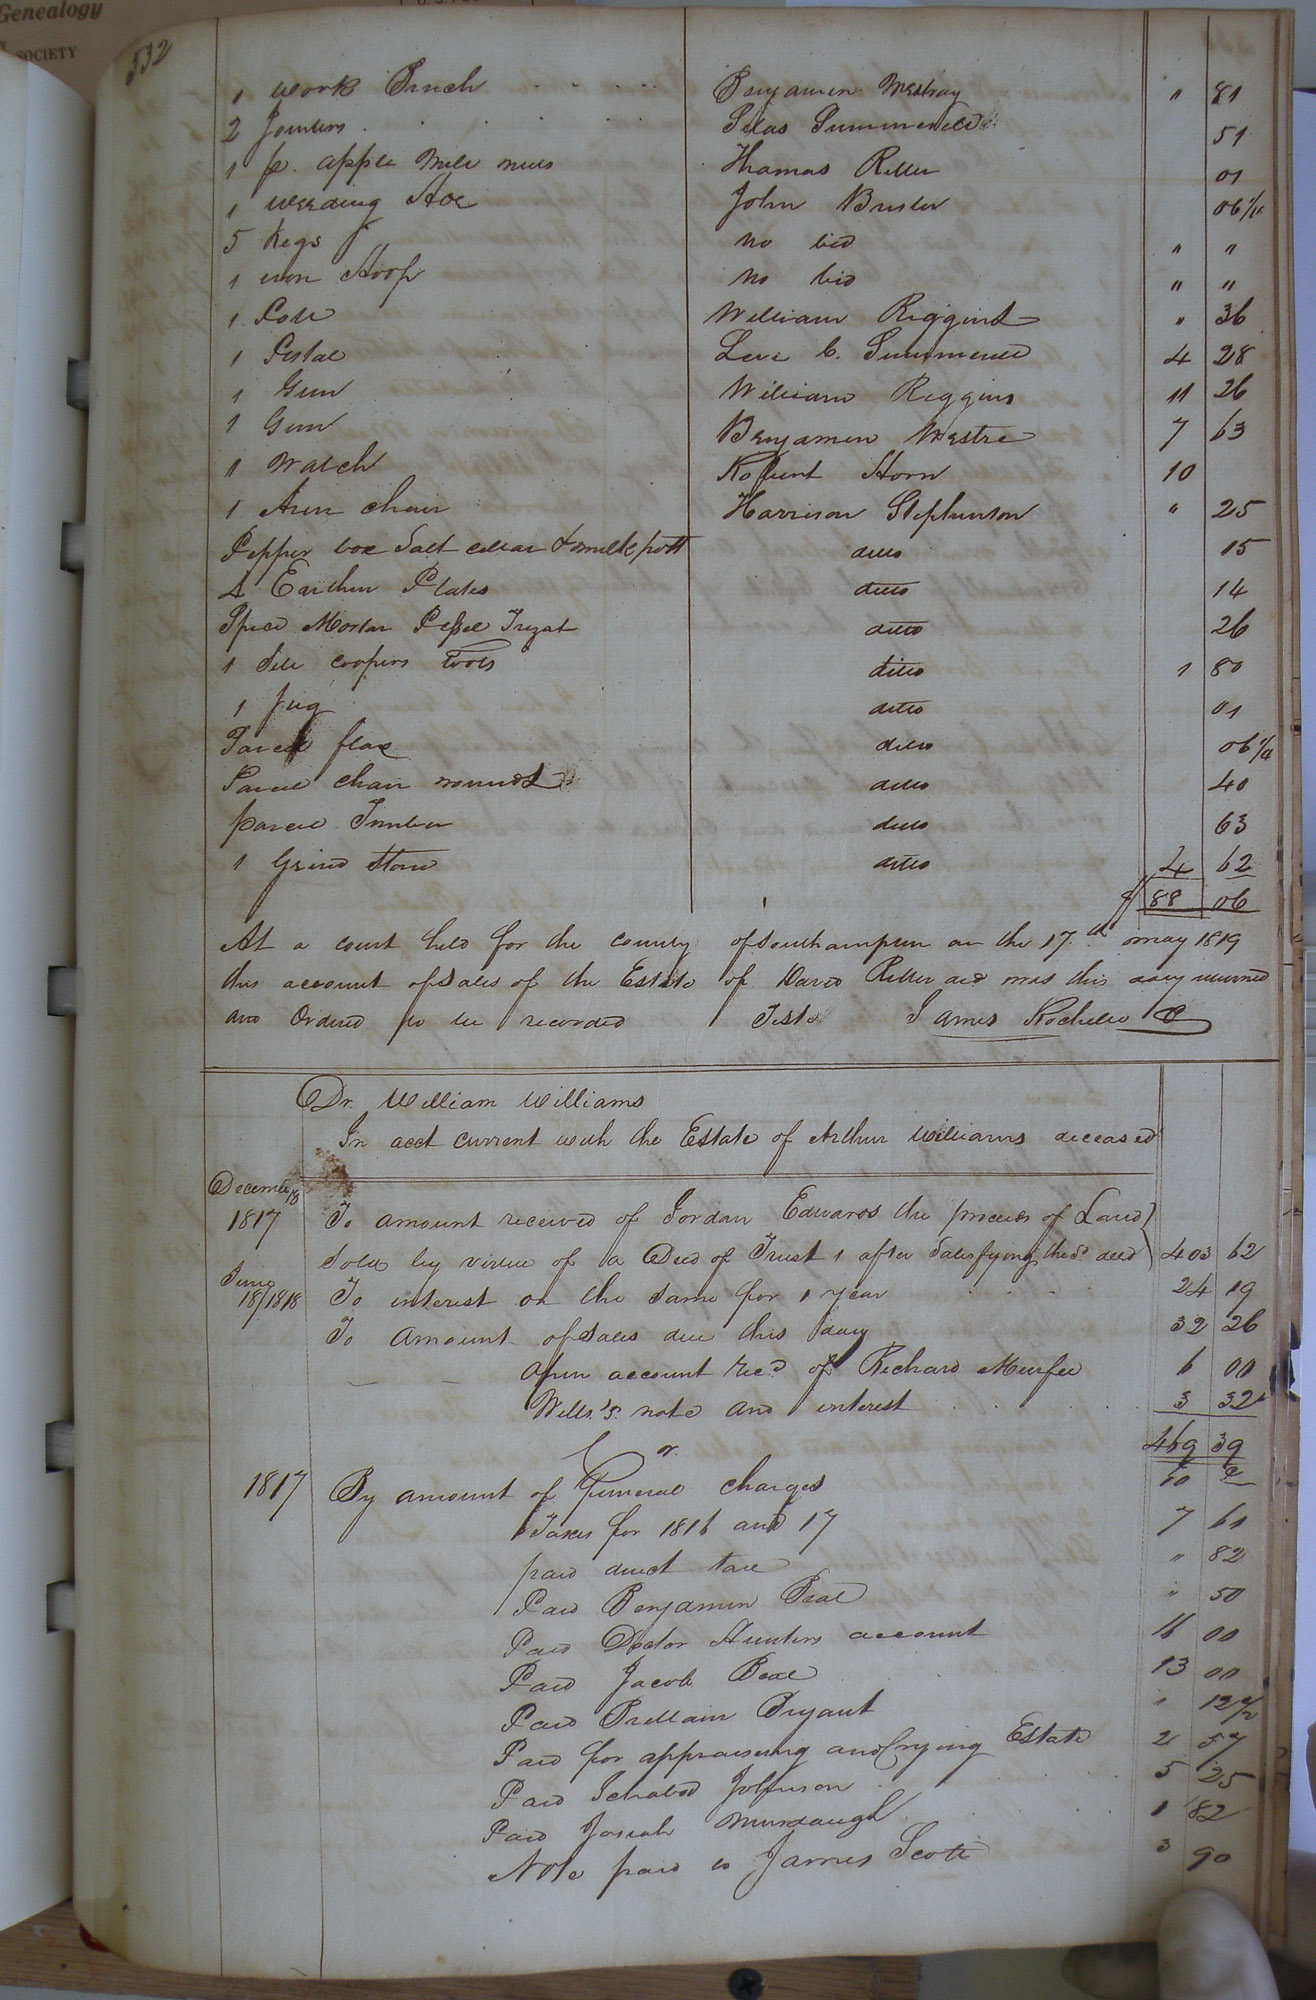 Genealogy
SOCIETY
532
1 work Bench Benjamin Westray " 81
2 Jointers Silas Summerell 51
1 p. apple Mill nuts Thomas Ritter 01
1 weeding Hoe John Bruster 06 1/4
5 Kegs no bid " "
1 iron Hoop no bid " "
1 William Riggins " 36
1 Pistal Levi C. Summerell 4 28
1 Gun William Riggins 11 26
1 Gun Benjamin Westre 7 63
1 Watch Robert Horn 10
1 Arm chair Harrison Stephenson " 25
Pepper box Salt cellar & milk pott ditto 15
4 Earthen Plates ditto 14
Spice Mortar Pessel ditto 26
1 Sett coopers Tools ditto 1 80
1 Jug ditto 01
Parcel flax ditto 06 1/4
Parcel chair rounds ditto 40
parcel Timber ditto 63
1 Grind Stone ditto 4 62
$ 88 06
At a court held for the county of Southampton on the 17th may 1819
this account of Sales of the Estate of David Ritter decd was this day returned
and Ordered to be recorded Teste James Rochelle C
Dr. William Williams
In acct current with the Estate of Arthur Williams deceased
December 18
1817 To amount received of Jordan Edwards the proceeds of Land
Sold by virtue of a Deed of Trust, after Satisfying the sd deed 403 62
June
18/1818 To interest on the Same for 1 year 24 19
To Amount of Sales due this day 32 26
open account recd of Richard Murfee 6 00
Wills's note and interest 3 32
469 39
Cr
1817 By amount of Funeral charges 10
Taxes for 1816 and 17 7 61
paid direct tax " 82
Paid Benjamin Beal " 50
Paid Doctor Hunters account 16 00
Paid Jacob Beal 13 00
Paid Bryant " 12 1/2
Paid for appraising and Crying Estate 2 57
Paid Ichabod Johnson 5 25
Paid Josiah Murdaugh 1 82
Note paid to James Scott 3 90